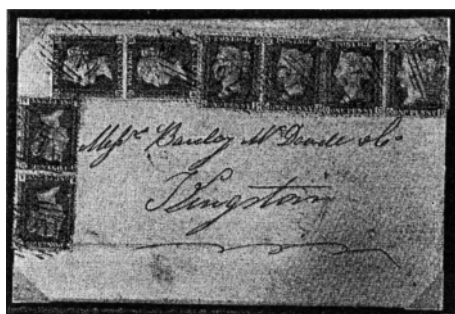 Messrs. Barclay McDowde & Co.
Kingston